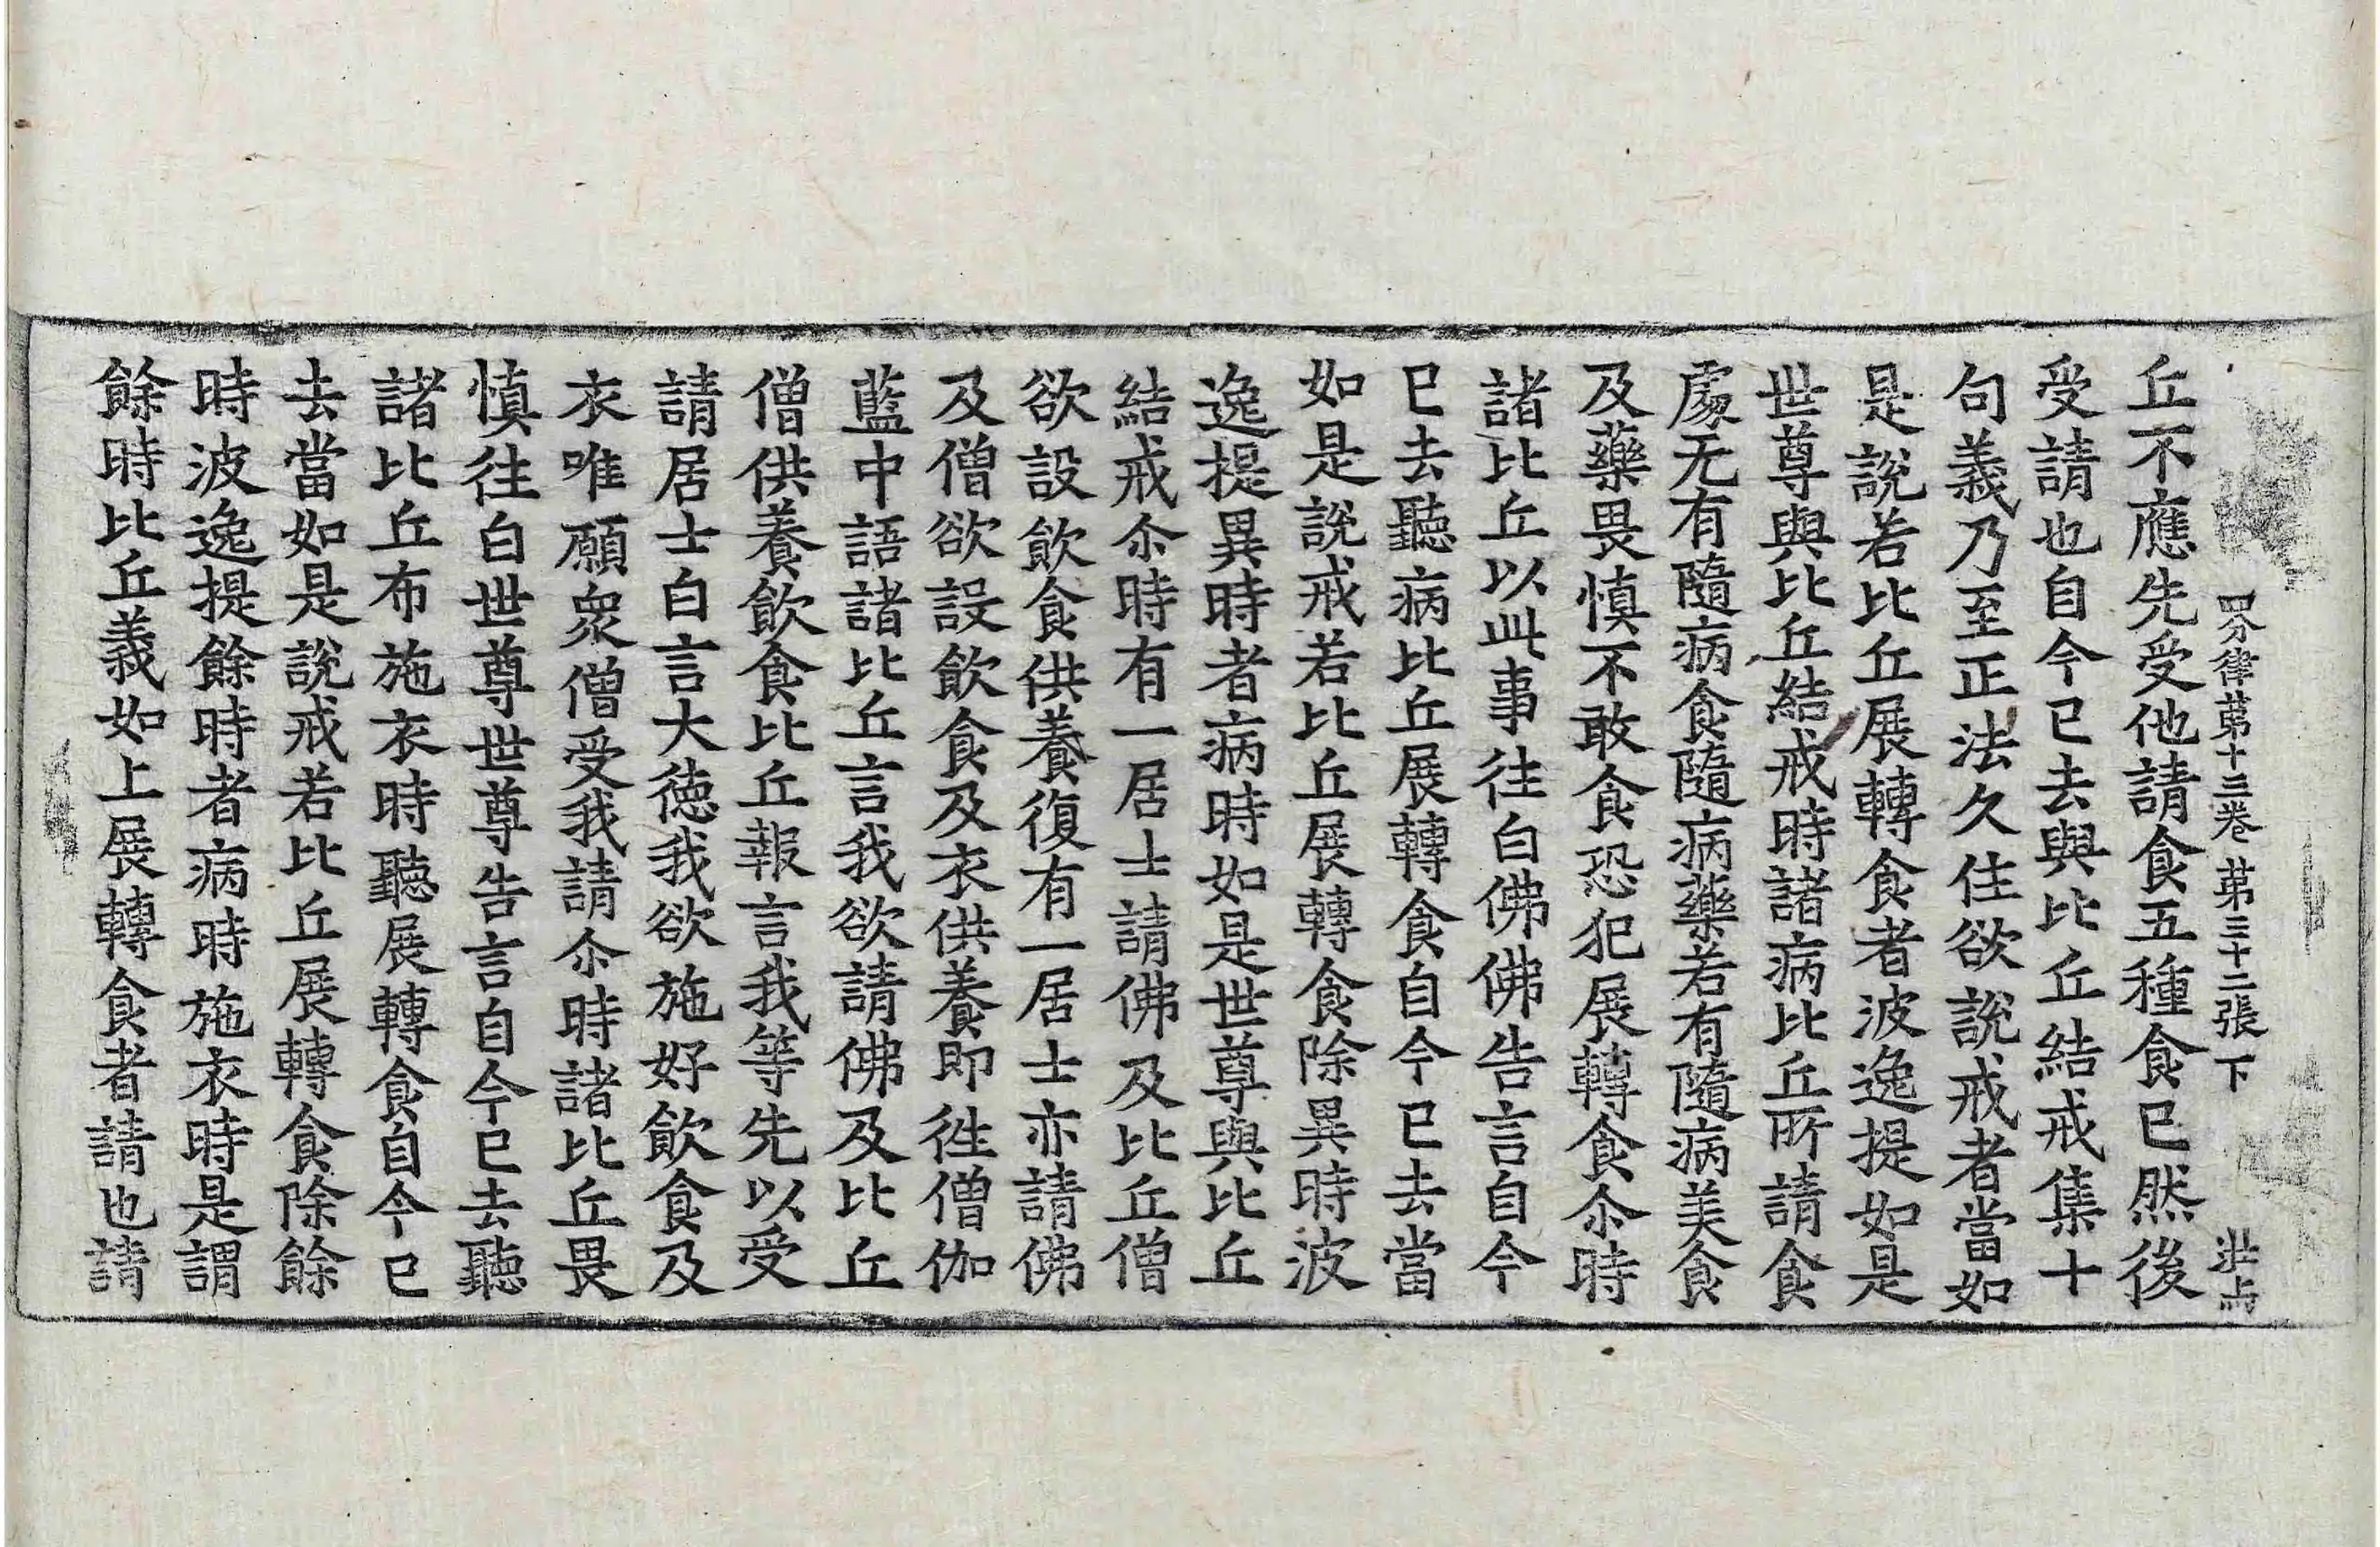 四分律第十三卷 第三十二張 下
丘不應先受他請食五種食已然後
受請也自今已去與比丘結戒集十
句義乃至正法久住欲說戒者當如
是說若比丘展轉食者波逸提如是
世尊與比丘結戒時諸病比丘所請食
處无有隨病食隨病藥若有隨病美食
及藥畏慎不敢食恐犯展轉食尒時
諸比丘以此事往白佛佛告言自今
已去聽病比丘展轉食自今已去當
如是說戒若比丘展轉食除異時波
逸提異時者病時如是世尊與比丘
結戒尒時有一居士請佛及比丘僧
欲設飲食供養復有一居士亦請佛
及僧欲設飲食及衣供養即徃僧伽
藍中語諸比丘言我欲請佛及比丘
僧供養飲食比丘報言我等先以受
請居士白言大德我欲施好飲食及
衣唯願眾僧受我請尒時諸比丘畏
慎往白世尊世尊告言自今已去聽
諸比丘布施衣時聽展轉食自今已
去當如是說戒若比丘展轉食除餘
時波逸提餘時者病時施衣時是謂
餘時比丘義如上展轉食者請也請